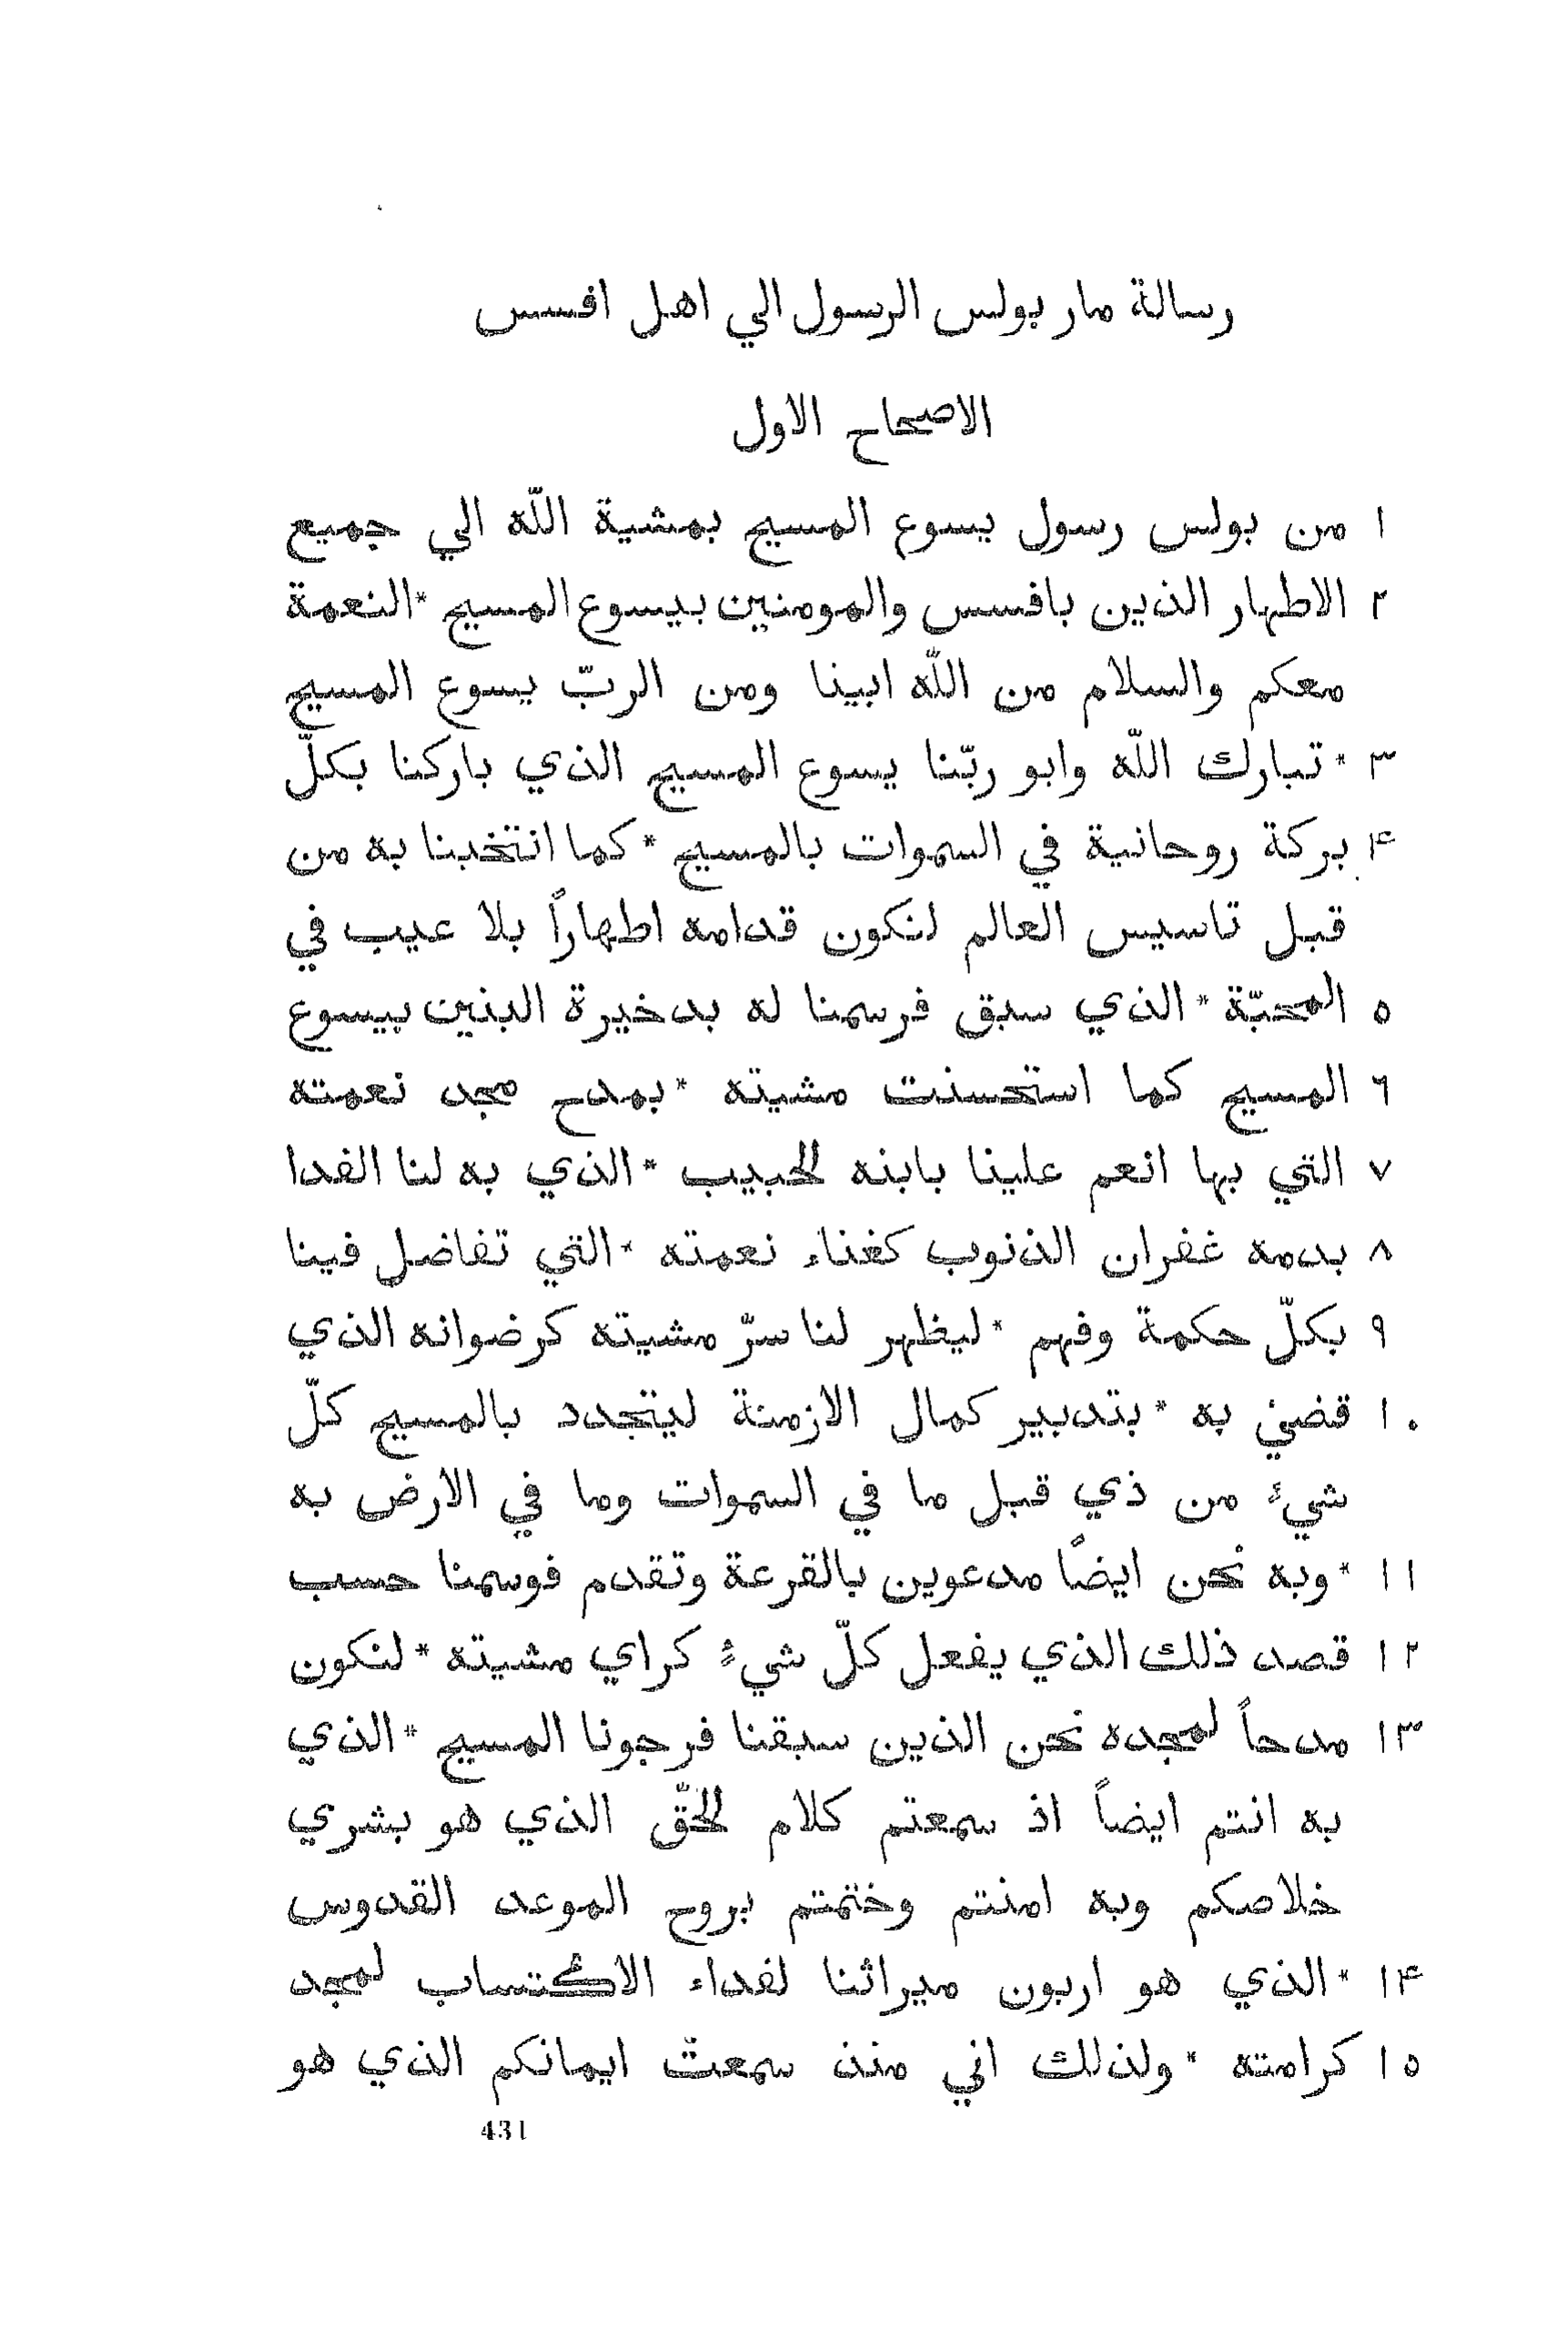 رسالة مار بولس الرسول الي اهل افسس
الاصحاح الاول
١ من بولس رسول يسوع المسيح بمشية اللّه الي جميع
٢ الاطهار الذين بافسس والمومنين بيسوع المسيح *النعمة
معكم والسلام من اللّه ابينا ومن الربّ يسوع المسيح
٣ *تبارك اللّه وابو ربّنا يسوع المسيح الذي باركنا بكلّ
۴ بركة روحانية في السموات بالمسيح *كما انتخبنا به من
قبل تاسيس العالم لنكون قدامه اطهاراً بلا عيب في
٥ المحبّة *الذي سبق فرسمنا له بدخيرة البنين بيسوع
٦ المسيح كما استحسنت مشيته *بمدح مجد نعمته
٧ التي بها انعم علينا بابنه لحبيب *الذي به لنا الفدا
٨ بدمه غفران الذنوب كغناء نعمته *التي تفاضل فينا
٩ بكلّ حكمة وفهم *ليظهر لنا سرّ مشيته كرضوانه الذي
١٠ قضيٰ به *بتدبير كمال الازمنة ليتجدد بالمسيح كلّ
شيءٍ من ذي قبل ما في السموات وما في الارض به
١١ *وبه نحن ايضاً مدعوين بالقرعة وتقدم فوسمنا حسب
١٢ قصد ذلك الذي يفعل كلّ شيءٍ كراي مشيته *لنكون
١٣ مدحاً لمجده نحن الذين سبقنا فرجونا المسيح *الذي
به انتم ايضاً اذ سمعتم كلام لحقّ الذي هو بشري
خلاصكم وبه امنتم وختمتم بروح الموعد القدوس
١۴ *الذي هو اربون ميراثنا لفداء الاكتساب لمجد
١٥ كرامته *ولذلك اني منذ سمعتّ ايمانكم الذي هو
431